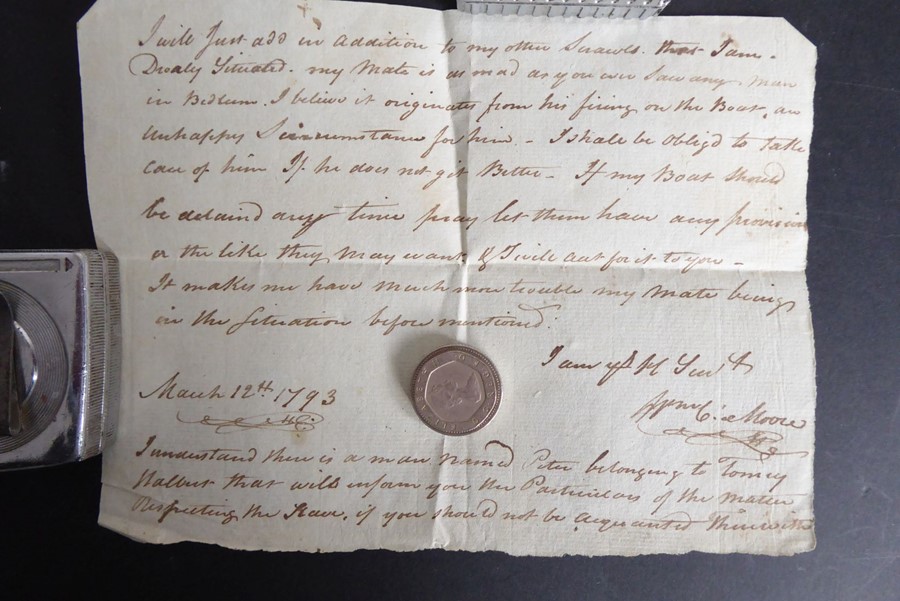 I will Just add in addition to my other Scrawls. that I am
Dealy Situated. my Mate is as mad as you ever Saw any man
in Bedlum. I believe it originates from his firing on the Boat, an
Unhappy Sircumstance for him. - I shall be oblig'd to take
care of him If he does not git Better - If my Boat should
be detaind any time pray let them have any provision
or the like they may want & I will act for it to you -
It makes me have much more trouble my Mate being
in the Situation before mentioned.
I am yr H Servt
Wm C. Moore
March 12th 1793
I understand there is a man named Peter belonging to Tomey
that will inform you the Particulars of the matter
Respecting the Slave, if you should not be acquanted Therewith